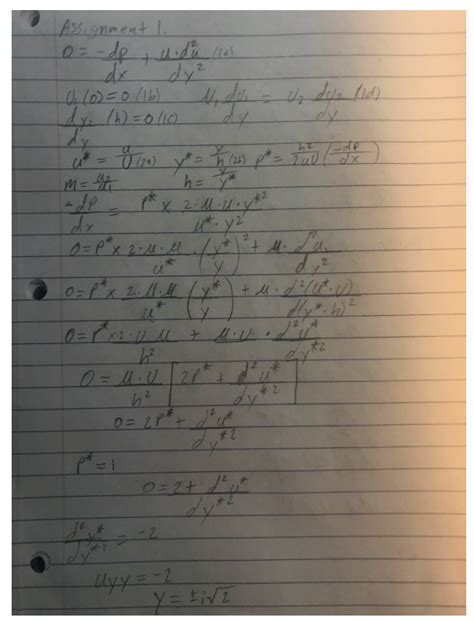 Assignment 1.
0 = -dp/dx + u·d²u/dy² (1a)
u₁(0) = 0 (1b) u₁ du₁/dy = u₂ du₂/dy (1d)
du₁/dy (h) = 0 (1c)
u* = u/U (2a) y* = y/h (2b) P* = h²/2uU (-dp/dx)
m = u₂/u₁ h = y/y*
-dp/dx = P* x 2·u·u·y*²/u*·y²
0 = P* x 2·u·u/u* · (y*/y)² + u· d²u₁/dy²
0 = P* x 2·u·u/u* (y*/y) + u·d²(u*·U)/d(y*·h)²
0 = P* x 2·U u/h² + u·U · d²u*/dy*²
0 = u·U/h² [2P* + d²u*/dy*²]
0 = 2P* + d²u*/dy*²
P* = 1
0 = 2 + d²u*/dy*²
d²y*/dy*² = -2
Uyy = -2
y = ±i√2